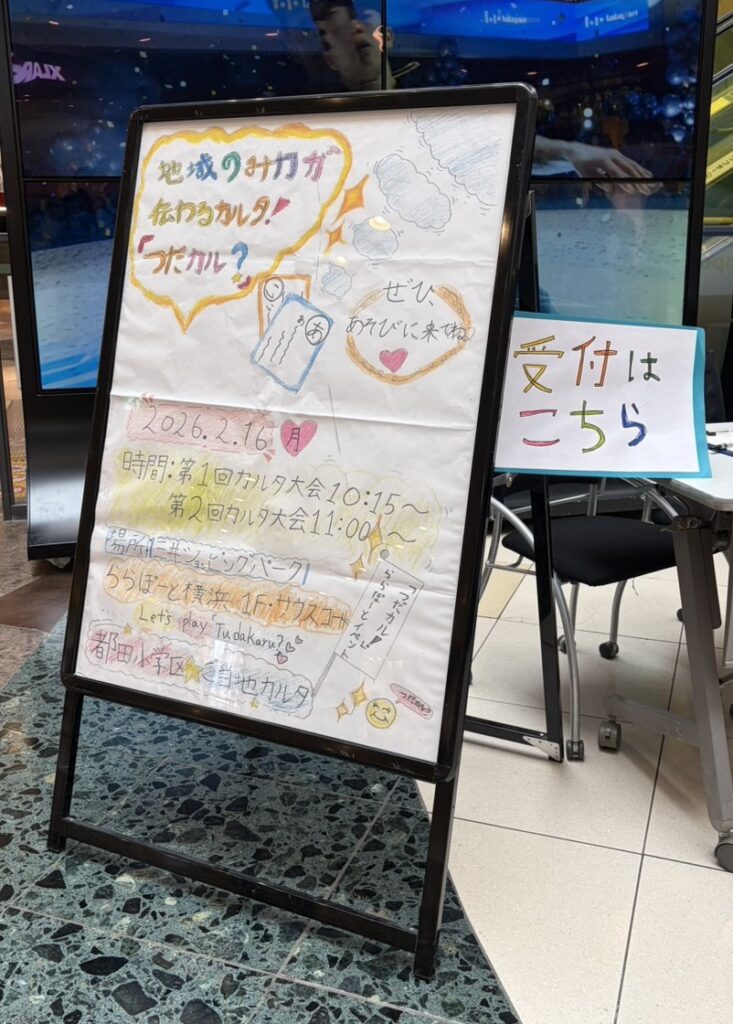 地域のみ力が
伝わるカルタ!
「つだカル?」
あ
ぜひ、
あそびに来てね♪
受付は
こちら
2026.2.16 月
時間:第1回カルタ大会10:15～
第2回カルタ大会11:00～
場所:三井ショッピングパーク
ららぽーと横浜 1F・サウスコート
Let's play Tudakaru?
都田小学区 ご当地カルタ
「つだカル」
ららぽーとイベント